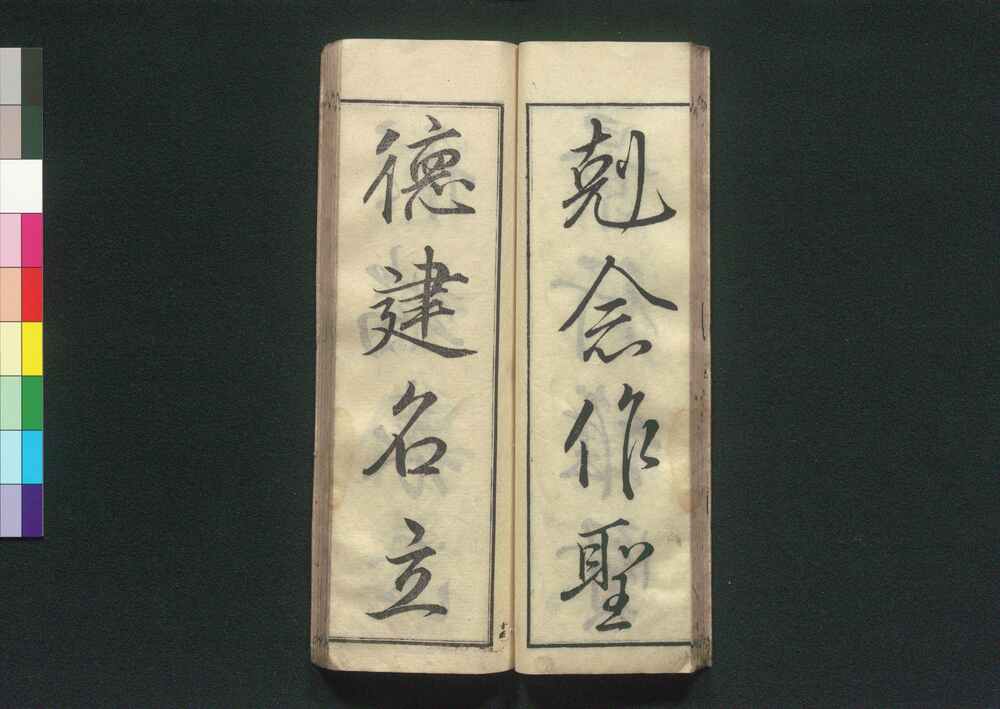 剋念作聖
德建名立